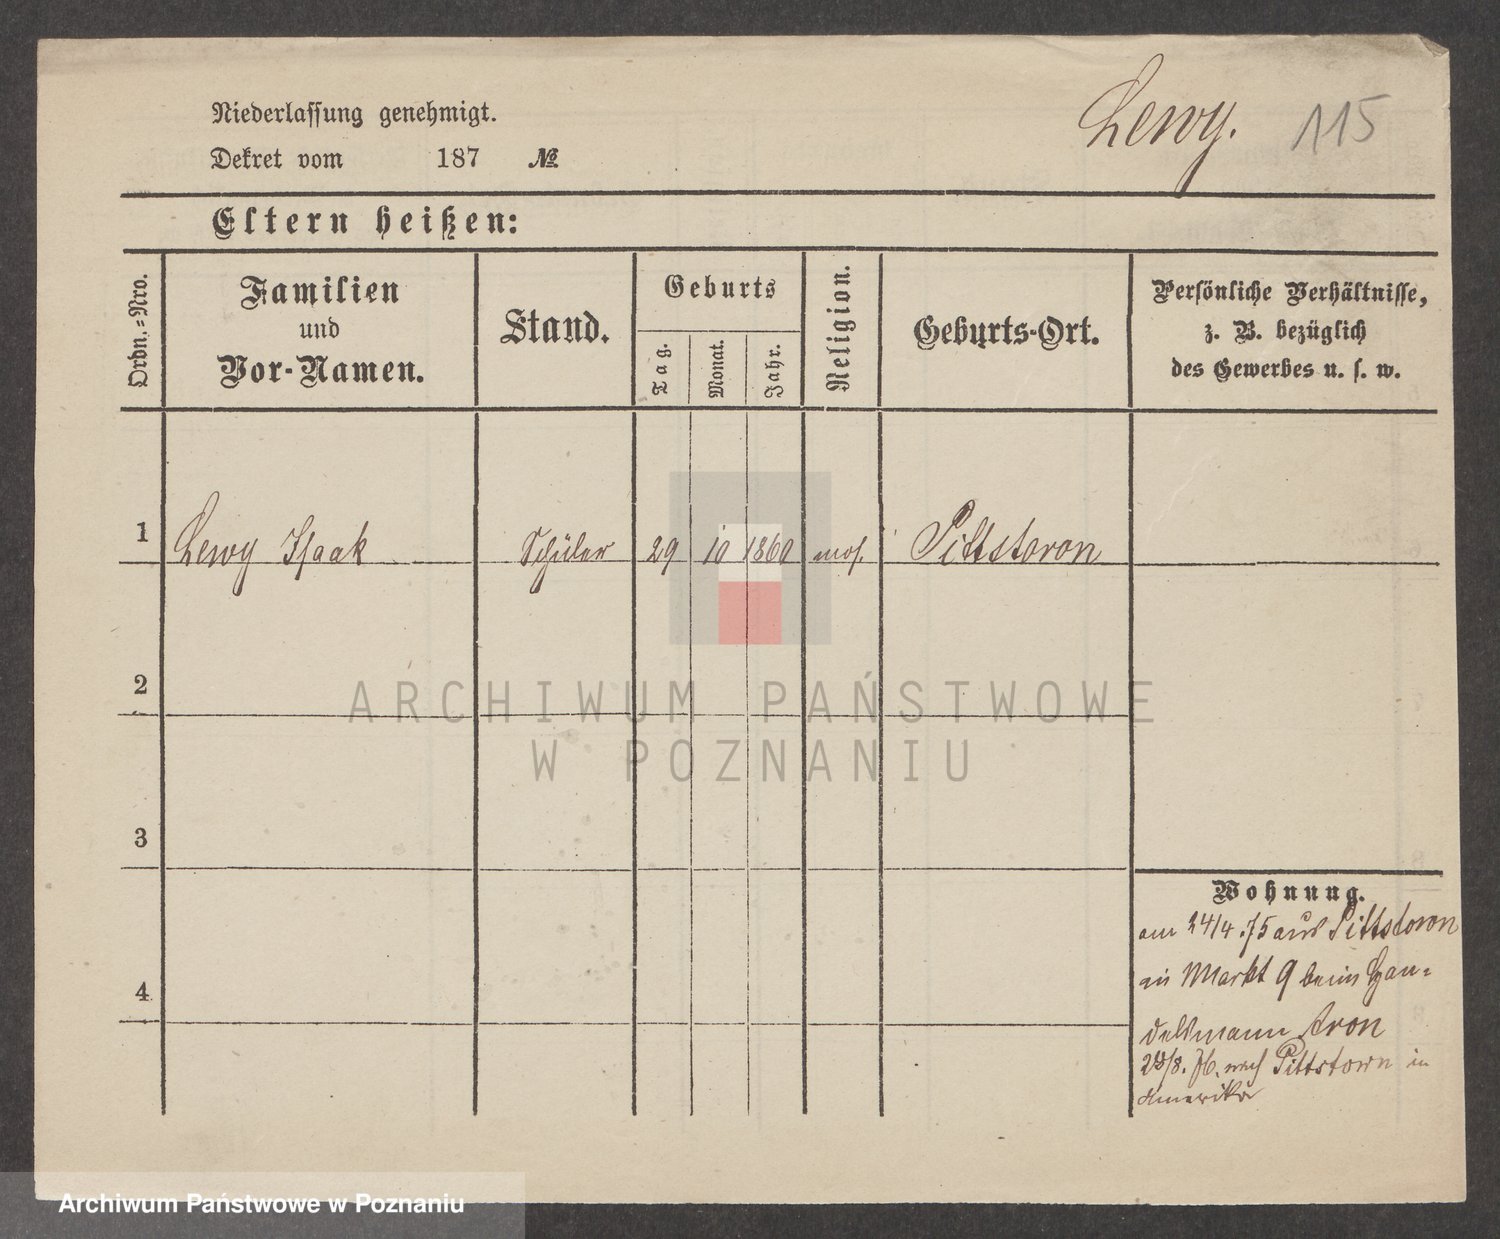 Lewy. 115
Niederlassung genehmigt.
Dekret vom 187 №
Eltern heißen:
Ordn.=Nro.
Familien
und
Vor-Namen.
Stand.
Geburts
Tag.
Monat.
Jahr.
Religion.
Geburts-Ort.
Persönliche Verhältnisse,
z. B. bezüglich
des Gewerbes u. s. w.
1 Lewy Isaak Schüler 29 10 1860 mos. Pittstown
2
ARCHIWUM PAŃSTWOWE
W POZNANIU
3
Wohnung.
am 24/4.75 aus Pittstown
in Markt 9 beim Han=
4
delsmann Aron
/8. 76. nach Pittstown in
Amerika
Archiwum Państwowe w Poznaniu